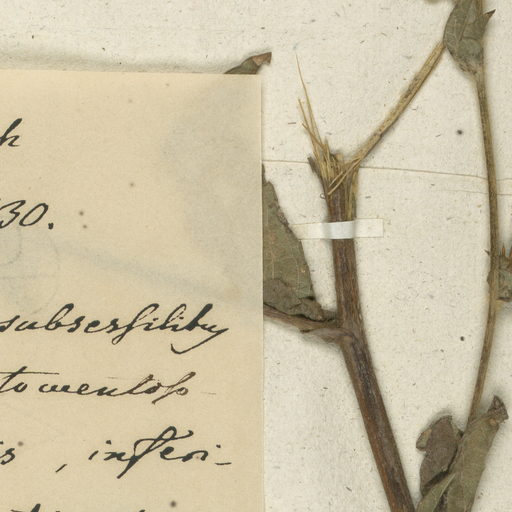 h
30.
subsessilibus
tomentos
is, inferi-